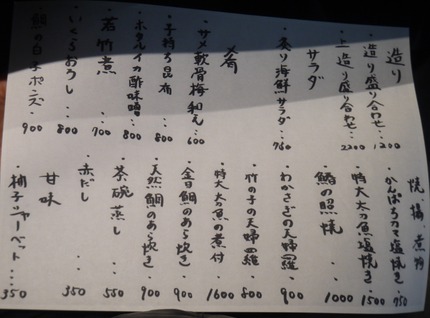 造り
・造り盛り合わせ・・1200
・上造り盛り合わせ・・2200
サラダ
・炙り海鮮サラダ・・780
肴
・サメ軟骨梅和え・・600
・子持ち昆布・・800
・ホタルイカ酢味噌・・800
・若竹煮・・700
・いくらおろし・・800
・鯛の白子ポン酢・・900
焼・揚・煮物
・かんぱちカマ塩焼き 750
・特大太刀魚塩焼き 1500
・鰆の照焼・・1000
・わかさぎの天婦羅・・900
・竹の子の天婦羅・・800
・特大太刀魚の煮付 1600
・金目鯛のあら炊き・900
・天然鯛のあら炊き・900
・茶碗蒸し・・550
・赤だし・・350
甘味
・柚子シャーベット・・・350